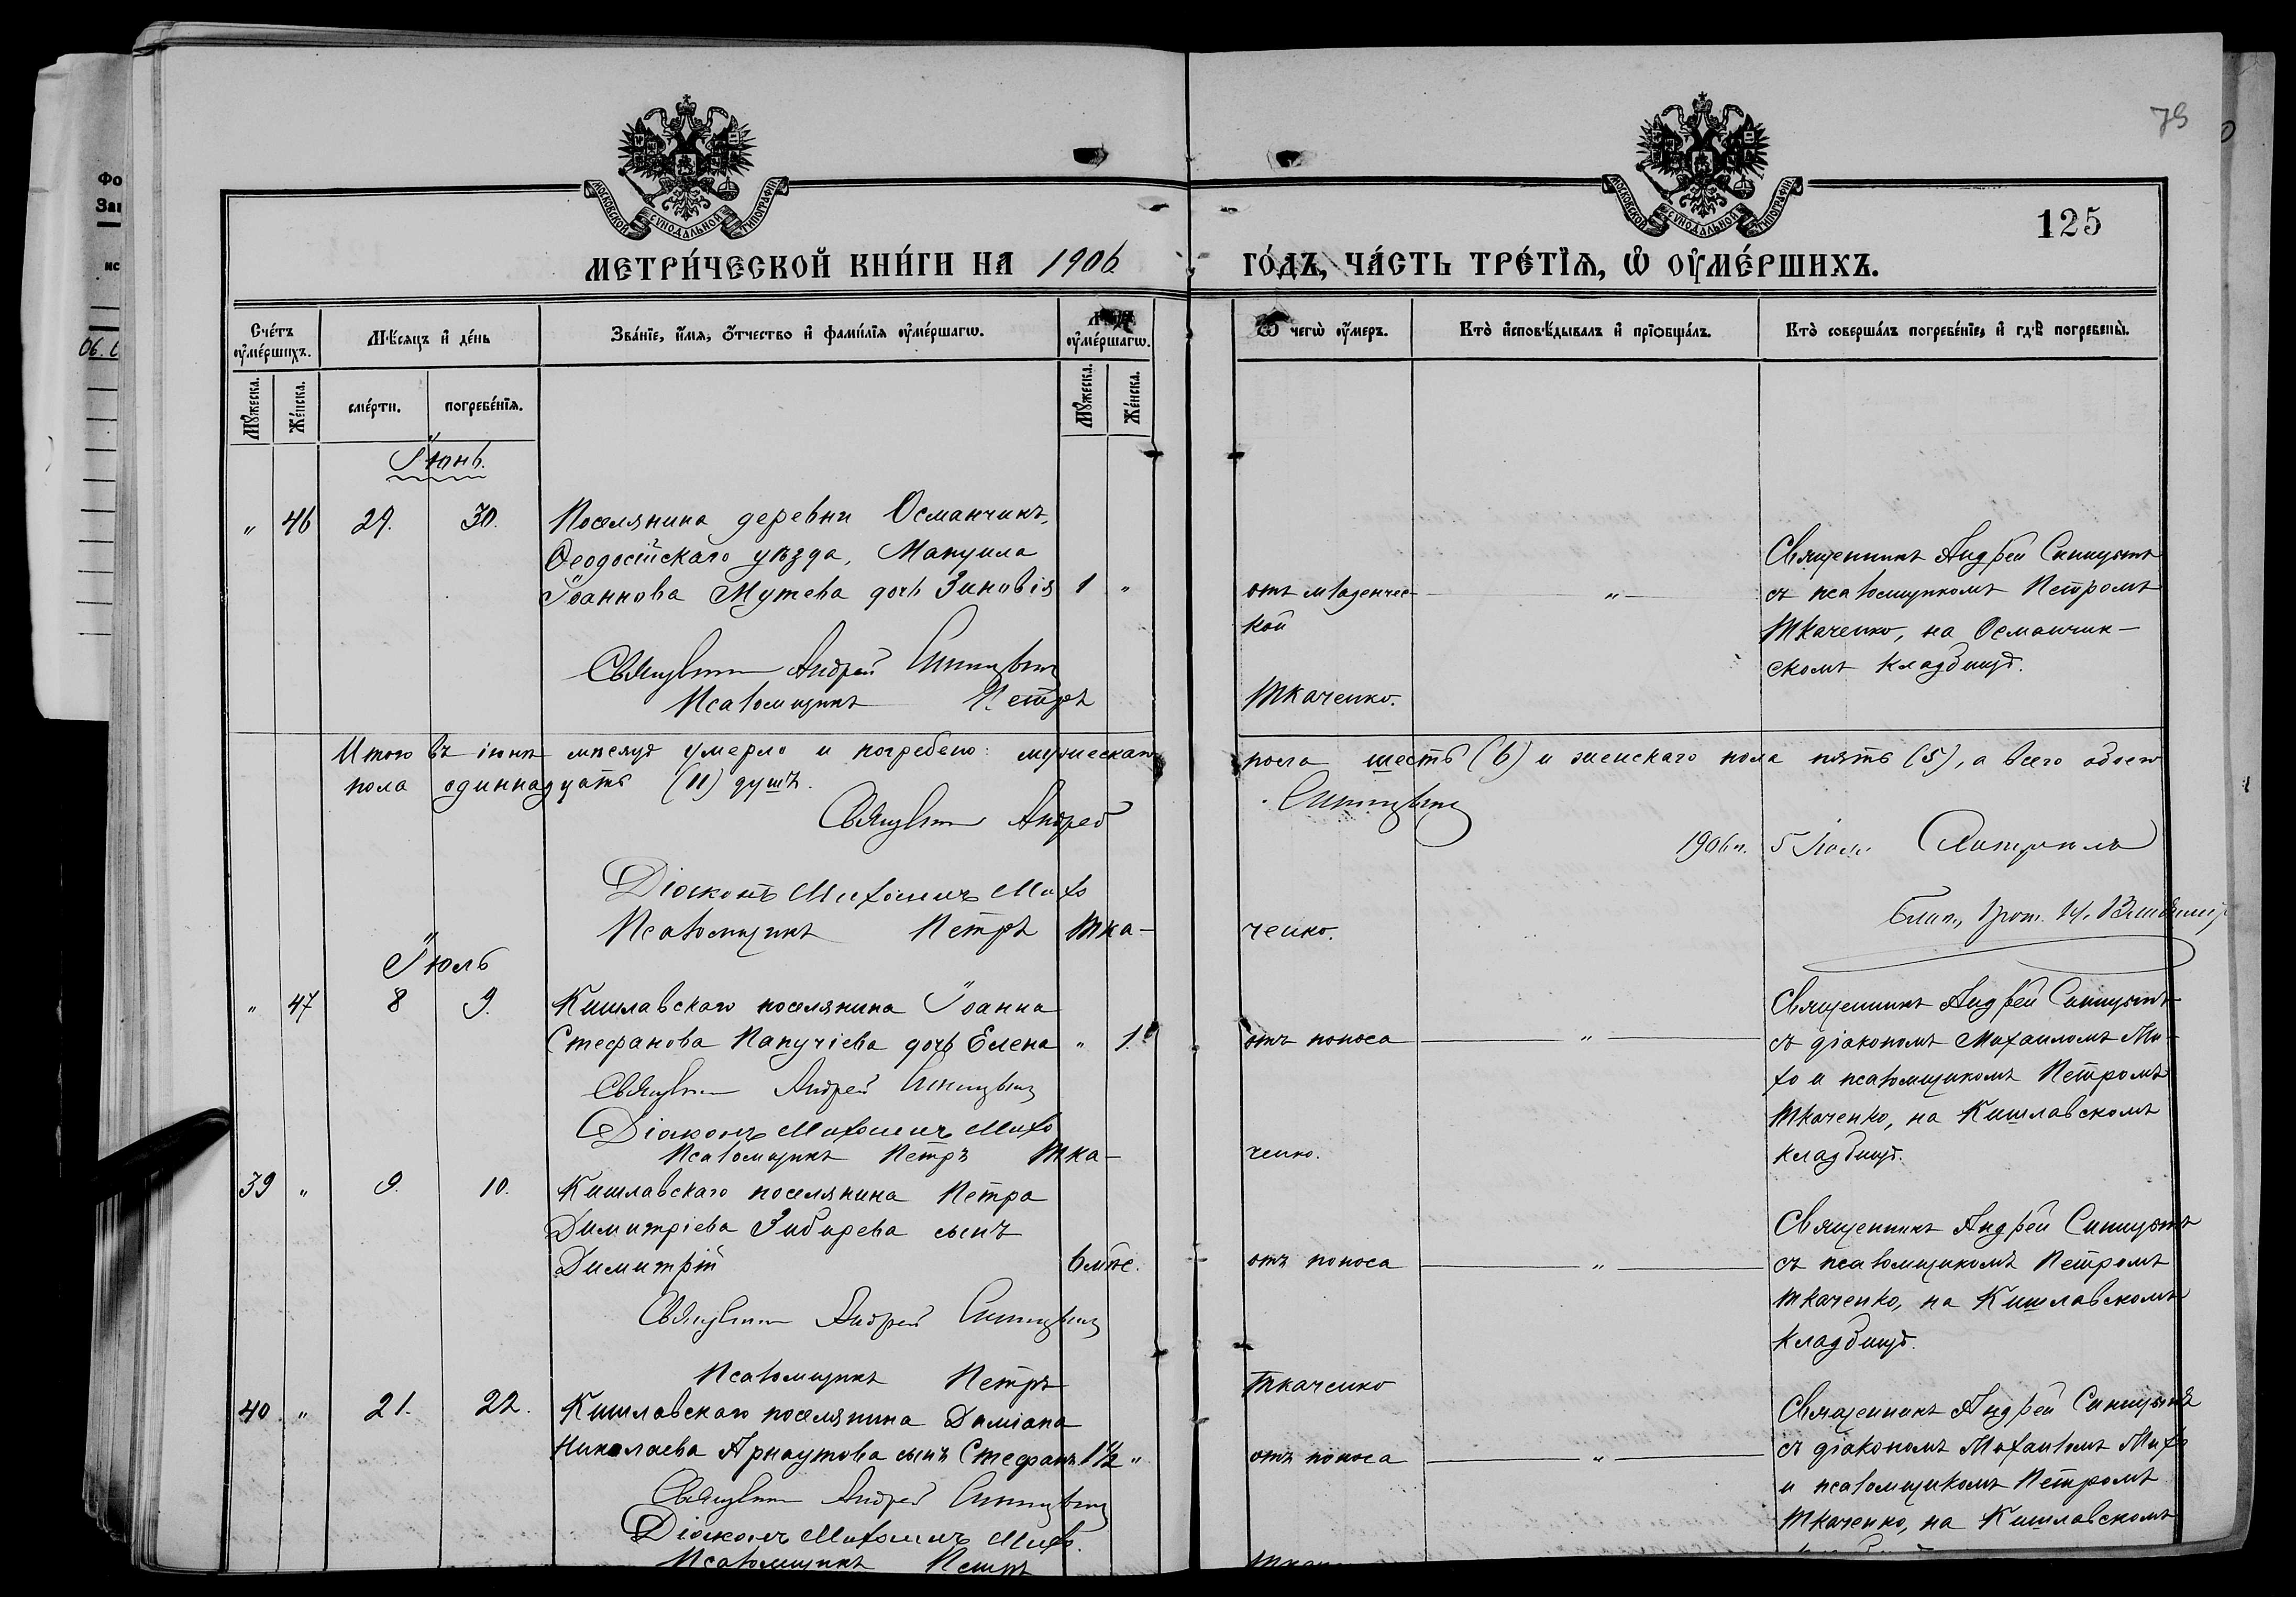 79
125
МОСКОВСКОЙ СѴНОДАЛЬНОЙ ТИПОГРАФІИ
МОСКОВСКОЙ СѴНОДАЛЬНОЙ ТИПОГРАФІИ
МЕТРИ́ЧЕСКОЙ КНИ́ГИ НА 1906 ГО́ДЪ, ЧА́СТЬ ТРЕ́ТІѦ, Ѡ ОУМЕ́РШИХЪ.
Сче́тъ оумершихъ.
Мѣсяцъ и де́нь
Зва́ніе, и́мя, о́тчество и фами́лія оуме́ршагѡ.
оуме́ршагѡ.
Ѿ чегѡ̀ оу́меръ.
Кто̀ исповѣ́дывалъ и пріѡбща́лъ.
Кто̀ соверша́лъ погребе́ніе, и гдѣ̀ погребены̀.
Мꙋжеска.
Же́нска.
сме́рти.
погребе́нія.
Мꙋжеска.
Же́нска.
Іюнь.
" 46 29. 30. Поселянина деревни Османчикъ,
Ѳеодосійскаго уѣзда, Мануила
Іоаннова Мутева дочь Зиновія 1 "
отъ младенчес-
кой
"
Священникъ Андрей Синицынъ
съ псаломщикомъ Петромъ
Ткаченко, на Османчик-
скомъ кладбищѣ.
Священникъ Андрей Синицынъ
Псаломщикъ Петръ Ткаченко.
Итого въ іюнѣ мѣсяцѣ умерло и погребено: мужескаго пола шесть (6) и женскаго пола пять (5), а всего обоего
пола одиннадцать (11) душъ.
Священникъ Андрей Синицынъ
1906 г. 5 Іюля
Діаконъ Михаилъ Михо
Благ., Прот. И.
Псаломщикъ Петръ Тка-ченко.
Іюль
" 47 8 9. Кишлавскаго поселянина Іоанна
Стефанова Папучіева дочь Елена " 1.
отъ поноса
"
Священникъ Андрей Синицынъ
съ діакономъ Михаиломъ Ми-
хо и псаломщикомъ Петромъ
Ткаченко, на Кишлавскомъ
кладбищѣ.
Священникъ Андрей Синицынъ
Діаконъ Михаилъ Михо
Псаломщикъ Петръ Тка-ченко.
39 " 9. 10. Кишлавскаго поселянина Петра
Димитріева Зибарева сынъ
Димитрій 6 мѣс.
отъ поноса
"
Священникъ Андрей Синицынъ
съ псаломщикомъ Петромъ
Ткаченко, на Кишлавскомъ
кладбищѣ.
Священникъ Андрей Синицынъ
Псаломщикъ Петръ Ткаченко
40 " 21. 22. Кишлавскаго поселянина Даміана
Николаева Арнаутова сынъ Стефанъ 1½ "
отъ поноса
"
Священникъ Андрей Синицынъ
съ діакономъ Михаиломъ Михо
и псаломщикомъ Петромъ
Ткаченко, на Кишлавскомъ
Священникъ Андрей Синицынъ
Діаконъ Михаилъ Михо.
Псаломщикъ Петръ